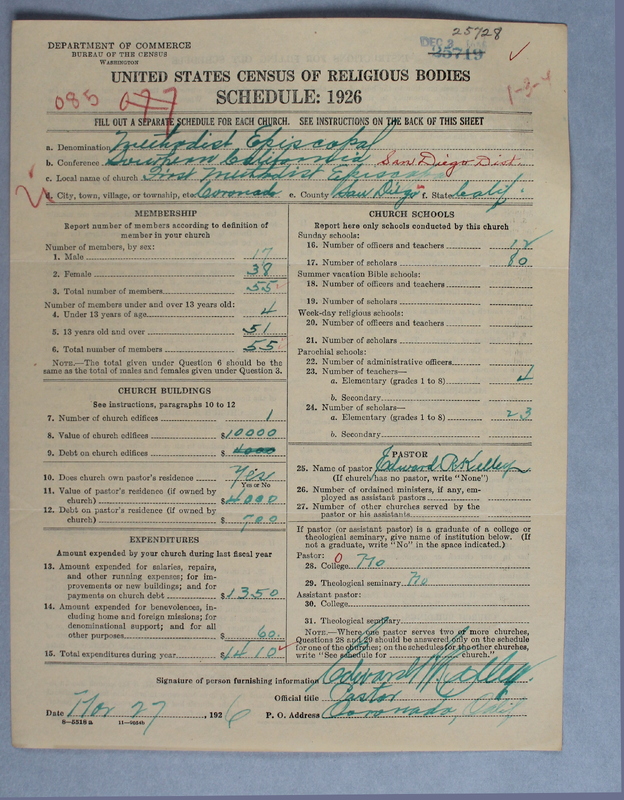 25728
DEPARTMENT OF COMMERCE
BUREAU OF THE CENSUS
WASHINGTON
DEC 2
25719
UNITED STATES CENSUS OF RELIGIOUS BODIES
SCHEDULE: 1926
085 077
1-3-4
FILL OUT A SEPARATE SCHEDULE FOR EACH CHURCH. SEE INSTRUCTIONS ON THE BACK OF THIS SHEET
a. Denomination Methodist Episcopal
b. Conference Southern California San Diego Dist.
c. Local name of church First Methodist Episcopal
d. City, town, village, or township, etc. Coronado e. County San Diego f. State Calif.
MEMBERSHIP
Report number of members according to definition of
member in your church
Number of members, by sex:
1. Male 17
2. Female 38
3. Total number of members 55
Number of members under and over 13 years old:
4. Under 13 years of age 4
5. 13 years old and over 51
6. Total number of members 55
NOTE.—The total given under Question 6 should be the
same as the total of males and females given under Question 3.
CHURCH BUILDINGS
See instructions, paragraphs 10 to 12
7. Number of church edifices 1
8. Value of church edifices $10000
9. Debt on church edifices $4000
10. Does church own pastor's residence? Yes
Yes or No
11. Value of pastor's residence (if owned by
church) $4000
12. Debt on pastor's residence (if owned by
church) $700
EXPENDITURES
Amount expended by your church during last fiscal year
13. Amount expended for salaries, repairs,
and other running expenses; for im-
provements or new buildings; and for
payments on church debt $1350
14. Amount expended for benevolences, in-
cluding home and foreign missions; for
denominational support; and for all
other purposes $60.
15. Total expenditures during year $1410
CHURCH SCHOOLS
Report here only schools conducted by this church
Sunday schools:
16. Number of officers and teachers 12
17. Number of scholars 80
Summer vacation Bible schools:
18. Number of officers and teachers
19. Number of scholars
Week-day religious schools:
20. Number of officers and teachers
21. Number of scholars
Parochial schools:
22. Number of administrative officers
23. Number of teachers—
a. Elementary (grades 1 to 8) 4
b. Secondary
24. Number of scholars—
a. Elementary (grades 1 to 8) 23
b. Secondary
PASTOR
25. Name of pastor Edward R Kelley
(If church has no pastor, write "None")
26. Number of ordained ministers, if any, em-
ployed as assistant pastors
27. Number of other churches served by the
pastor or his assistants
If pastor (or assistant pastor) is a graduate of a college or
theological seminary, give name of institution below. (If
not a graduate, write "No" in the space indicated.)
Pastor: 0
28. College No
29. Theological seminary No
Assistant pastor:
30. College
31. Theological seminary
NOTE.—Where one pastor serves two or more churches,
Questions 28 and 29 should be answered only on the schedule
for one of the churches; on the schedules for the other churches,
write "See schedule for church."
Signature of person furnishing information Edward R. Kelley.
Official title Pastor
Date Nov 27, 1926 P. O. Address Coronado, Calif
8—5518 a 11—9234b